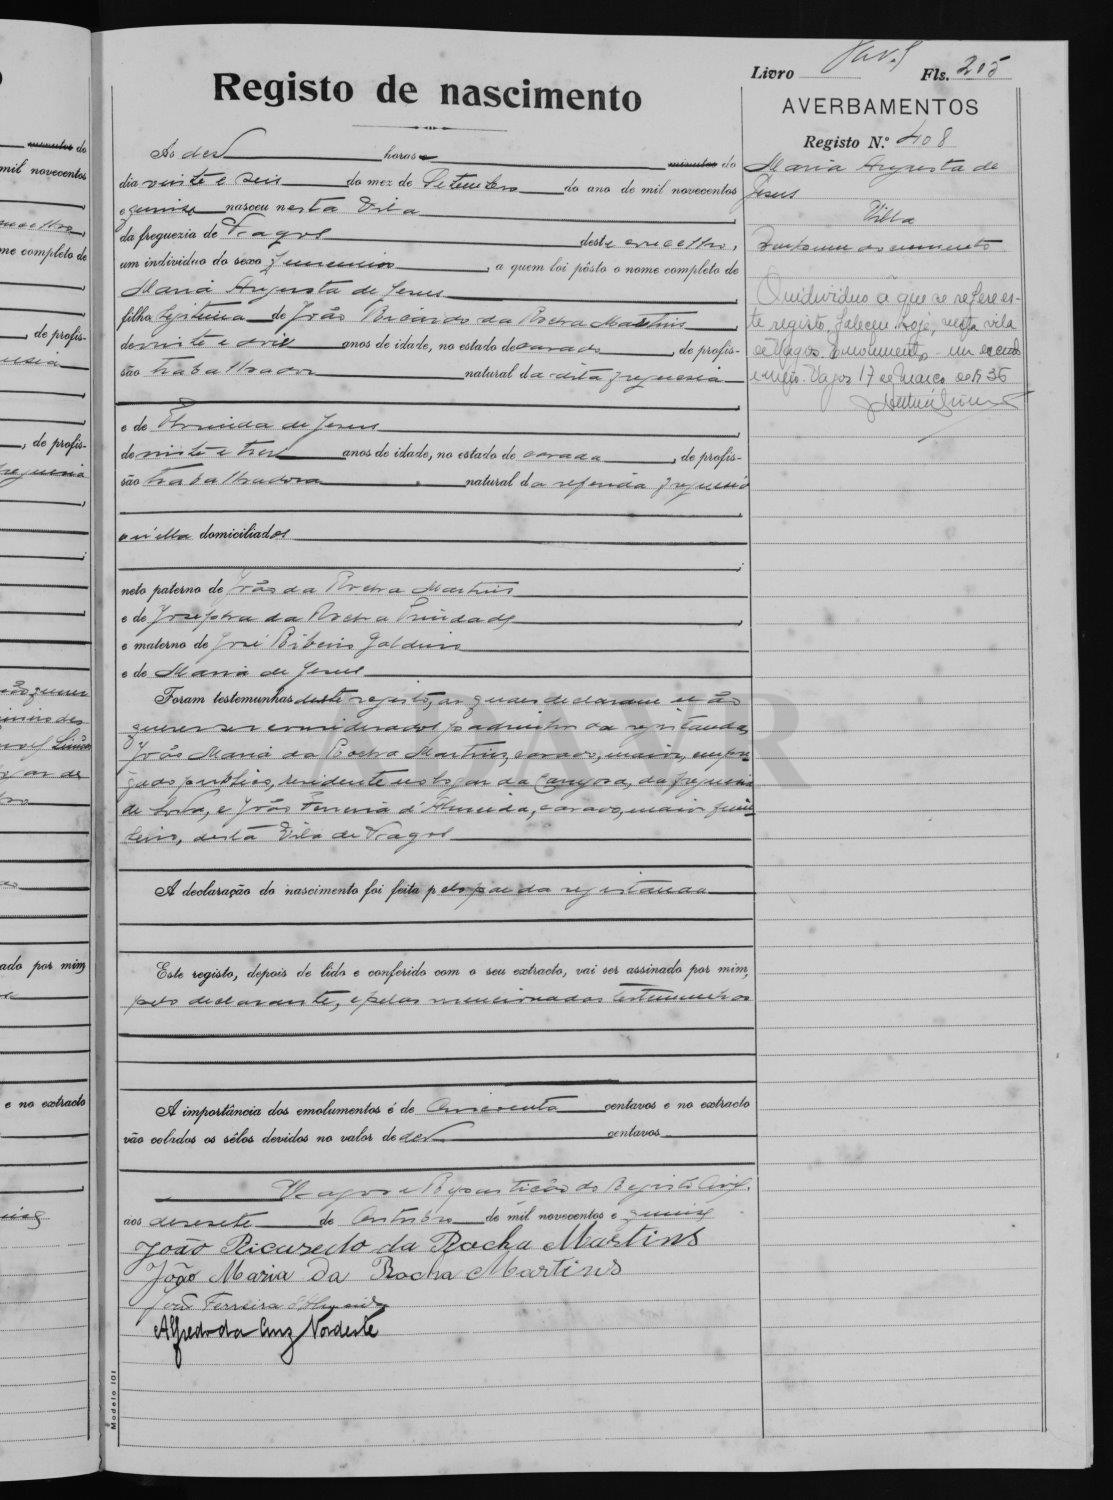 Livro Fls. 205
Registo de nascimento
AVERBAMENTOS
Registo N.º 408
Ás dez horas minutos do
dia vinte e seis do mez de Setembro do ano de mil novecentos
e quinze nasceu nesta Vila
da freguezia de Vagos deste concelho,
um individuo do sexo femenino, a quem foi pôsto o nome completo de
Maria Augusta de Jesus
filha legitima de João Ricardo da Rocha Martins,
de vinte e dois anos de idade, no estado de casado, de profis-
são trabalhador natural da desta freguesia
e de de Jesus
de vinte e tres anos de idade, no estado de casada, de profis-
são trabalhadora natural da referida freguesia
domiciliados
neto paterno de João da Rocha Martins
e de Josepha da Rocha Trindade,
e materno de José Ribeiro
e de Maria de Jesus
Foram testemunhas deste registo, as quaes declararam não
querer ser considerados padrinhos da registanda,
João Maria da Rocha Martins, casado, maior, empre-
gado publico, residente no logar da, da freguesia
de, e João Ferreira d'Almeida, casado, maior,
desta Vila de Vagos
A declaração do nascimento foi feita pelo pae da registanda
Este registo, depois de lido e conferido com o seu extracto, vai ser assinado por mim,
pelo declarante, e pelas mencionadas testemunhas
A importância dos emolumentos é de centavos e no extracto
vão colados os sêlos devidos no valor de dez centavos
Vagos e Repartição do Registo Civil,
aos dezesete de Outubro de mil novecentos e quinze
João Ricardo da Rocha Martins
João Maria da Rocha Martins
João Ferreira d'Almeida
Alfredo da Cruz Nordeste
Modelo 101
Maria Augusta de
Jesus
Villa
documento
O individuo a que se refere es-
te registo, faleceu hoje, nesta vila
de Vagos. Emolumento um escudo
Vagos 17 de Março de 1936
minutos do
mil novecentos
me completo de
, de profis-
, de profis-
ado por mim,
e no extracto